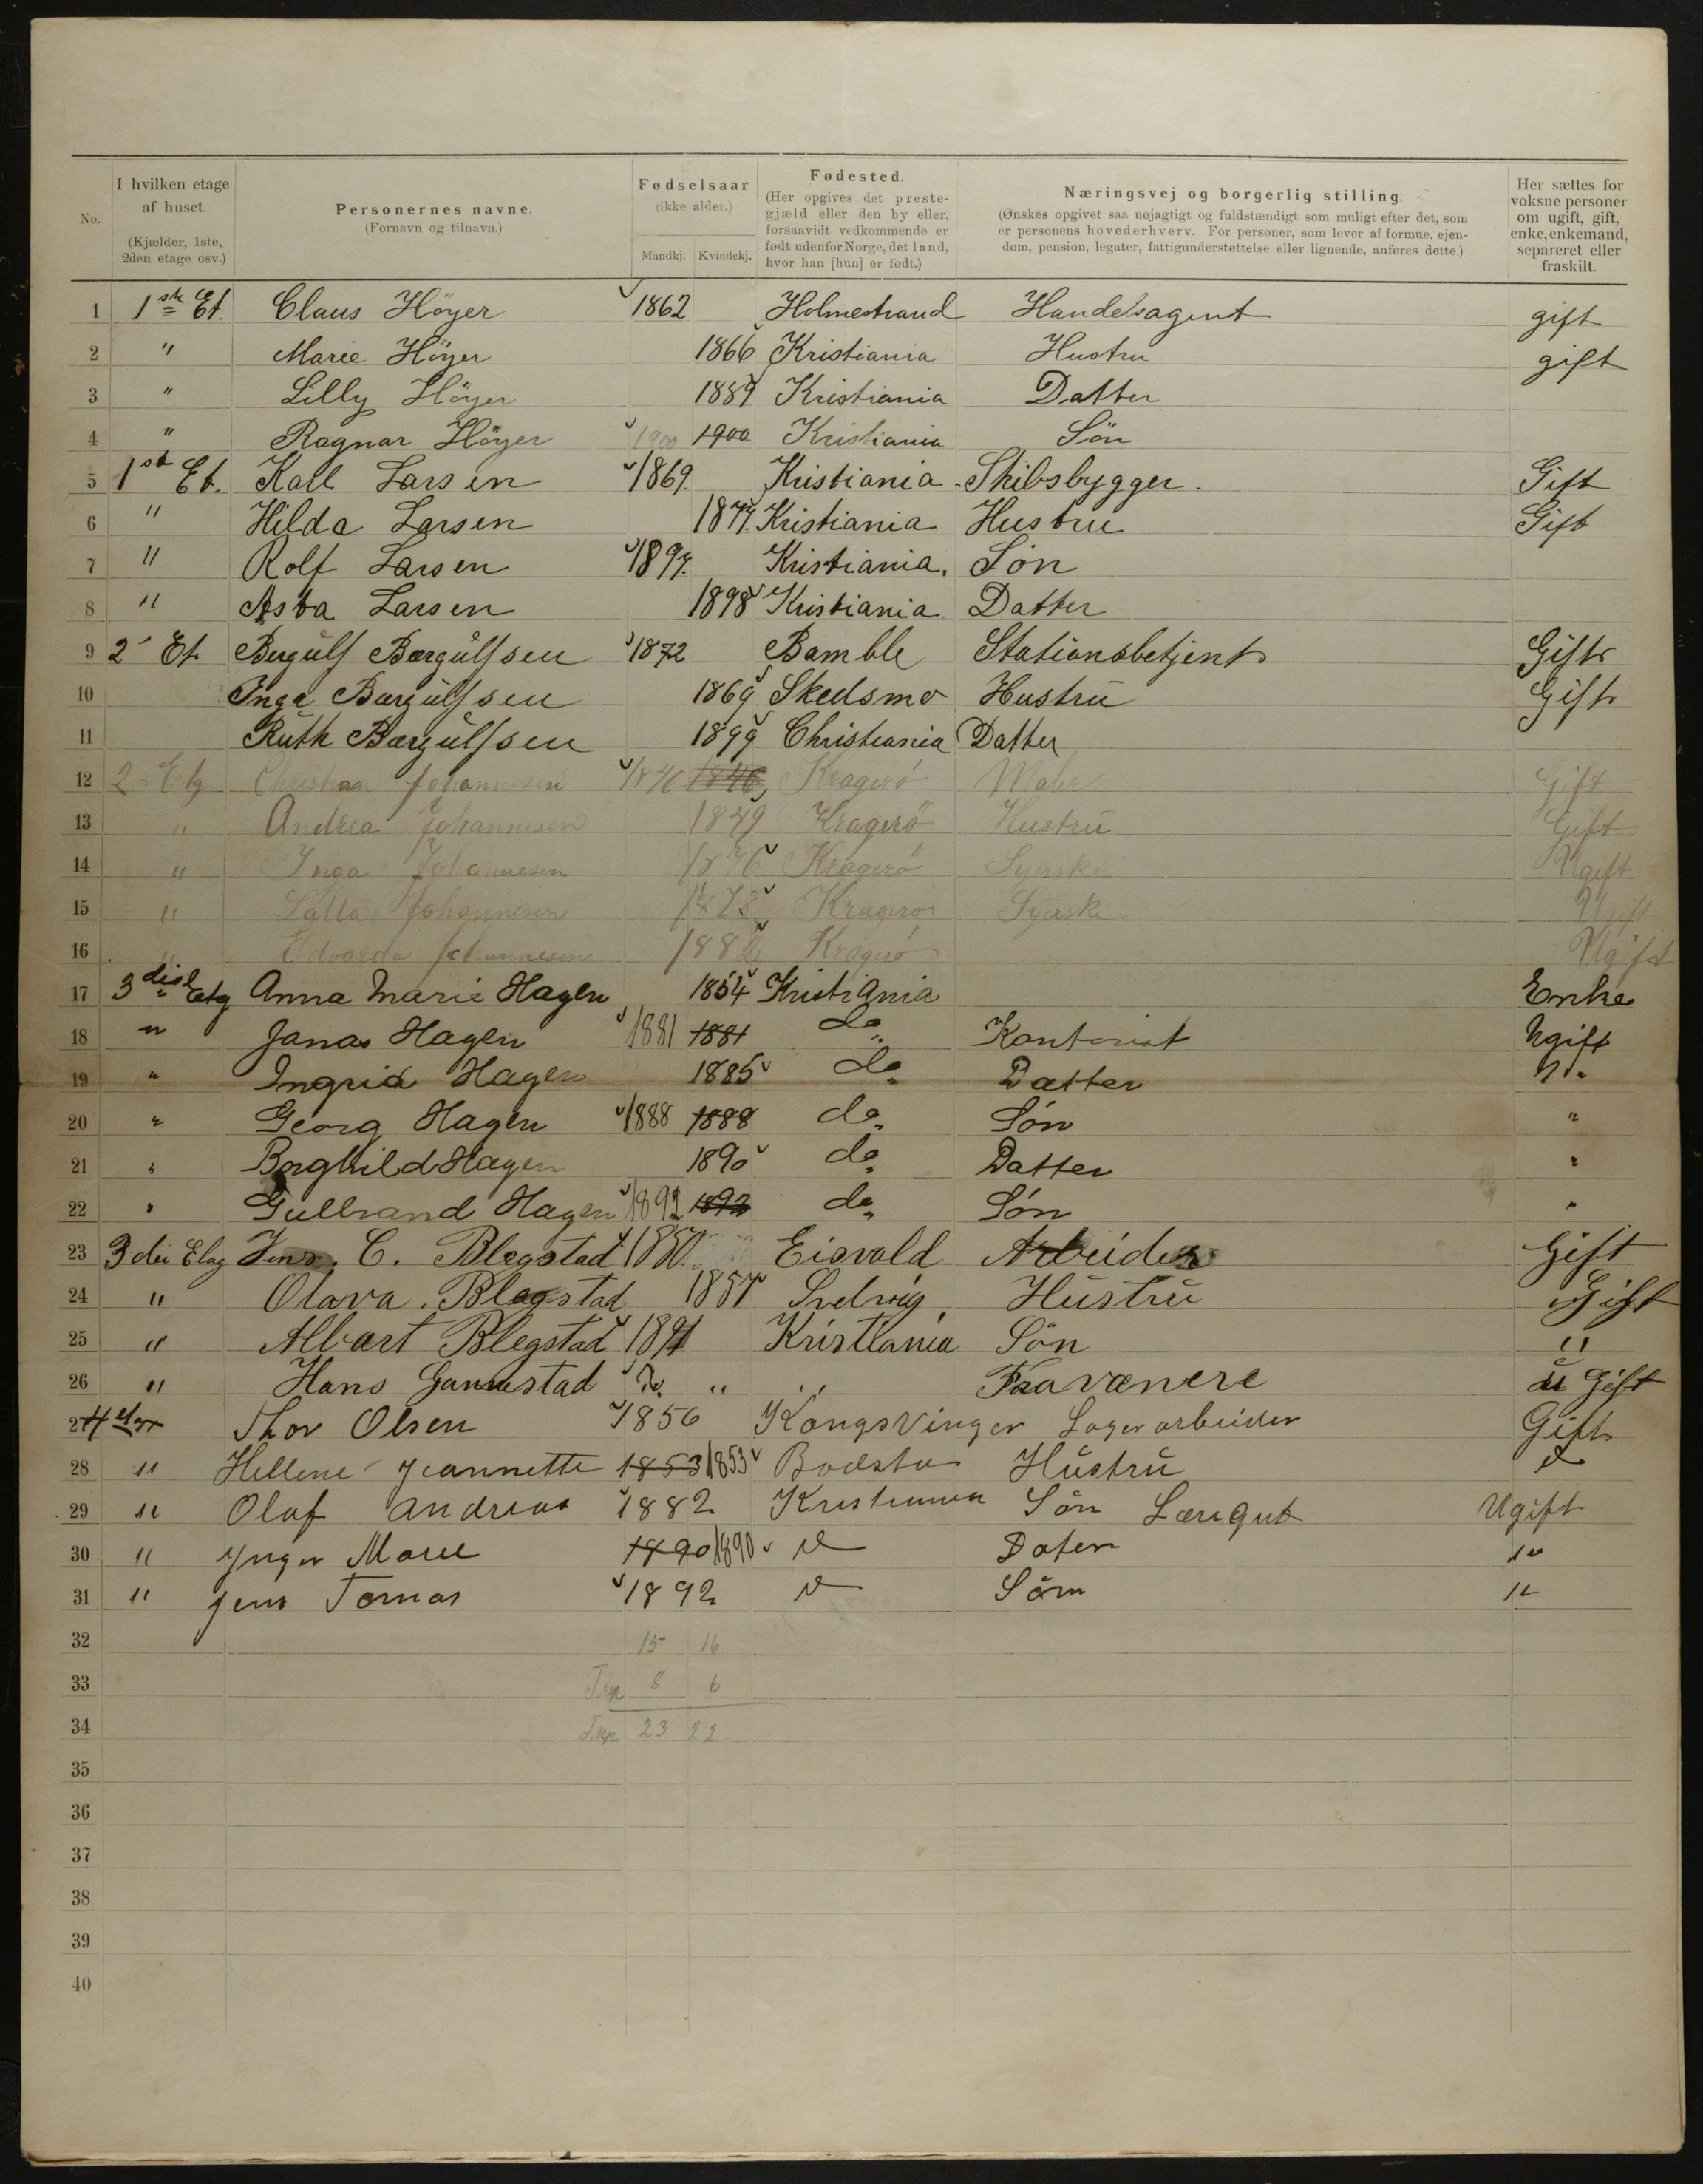 No.
I hvilken etage af huset. (Kjælder, 1ste, 2den etage osv.)
Personernes navne. (Fornavn og tilnavn.)
Fødselsaar (ikke alder.) Mandkj. Kvindekj.
Fødested. (Her opgives det prestegjæld eller den by eller, forsaavidt vedkommende er født udenfor Norge, det land, hvor han [hun] er født.)
Næringsvej og borgerlig stilling. (Ønskes opgivet saa nøjagtigt og fuldstændigt som muligt efter det, som er personens hovederhverv. For personer, som lever af formue, ejendom, pension, legater, fattigunderstøttelse eller lignende, anføres dette.)
Her sættes for voksne personer om ugift, gift, enke, enkemand, separeret eller fraskilt.
1 1ste Et. Claus Höyer 1862 Holmestrand Handelsagent gift
2 " Marie Höyer 1866 Kristiania Hustru gift
3 " Lilly Höyer 1889 Kristiania Datter
4 " Ragnar Höyer 1900 1900 Kristiania Sön
5 1st Et. Karl Larsen 1869. Kristiania. Skibsbygger. Gift
6 " Hilda Larsen 1877. Kristiania Hustru Gift
7 " Rolf Larsen 1897. Kristiania. Søn
8 " Asta Larsen 1898 Kristiania Datter
9 2 Et. Bergulf Bergulfsen 1872 Bamble Stationsbetjent Gift
10 Inga Bergulfsen 1869 Skedsmo Hustru Gift
11 Ruth Bergulfsen 1899 Christiania Datter
12 2 Etg Christian Johannesen 1846 1846 Kragerö Maler Gift
13 " Andrea Johannesen 1849 Kragerö Hustru Gift
14 " Inga Johannesen 1876 Kragerö Syerske Ugift
15 " Johannesen 1878 Kragerø Syerske Ugift
16 " Edvarda Johannesen 1882 Kragerø Ugift
17 3die Etg Anna Marie Hagen 1854 Kristiania Enke
18 " Jonas Hagen 1881 1881 do Kontorist Ugift
19 " Ingrid Hagen 1885 do Datter
20 " Georg Hagen 1888 1888 do Søn "
21 " Borghild Hagen 1890 do Datter "
22 " Gulbrand Hagen 1892 1892 do Søn "
23 3die Etag Jens. C. Blegstad 1850. Eisvold Arbeider Gift
24 " Olava. Blegstad 1857 Svelvig Hustru Gift
25 " Albart Blegstad 1891 Kristiania Sön "
26 " Hans " " Fraværende Gift
27 4 Thor Olsen 1856 Kongsvinger Lagerarbeider Gift
28 " Hellene Jeannette 1853 1853 Hustru
29 " Olaf Andreas 1882 Kristiania Sön Læregut Ugift
30 " Inger Marie 1890 1890 Daten "
31 " Jens Tomas 1892 Sörn "
32 15 16
33 8 6
34 23 22
35
36
37
38
39
40